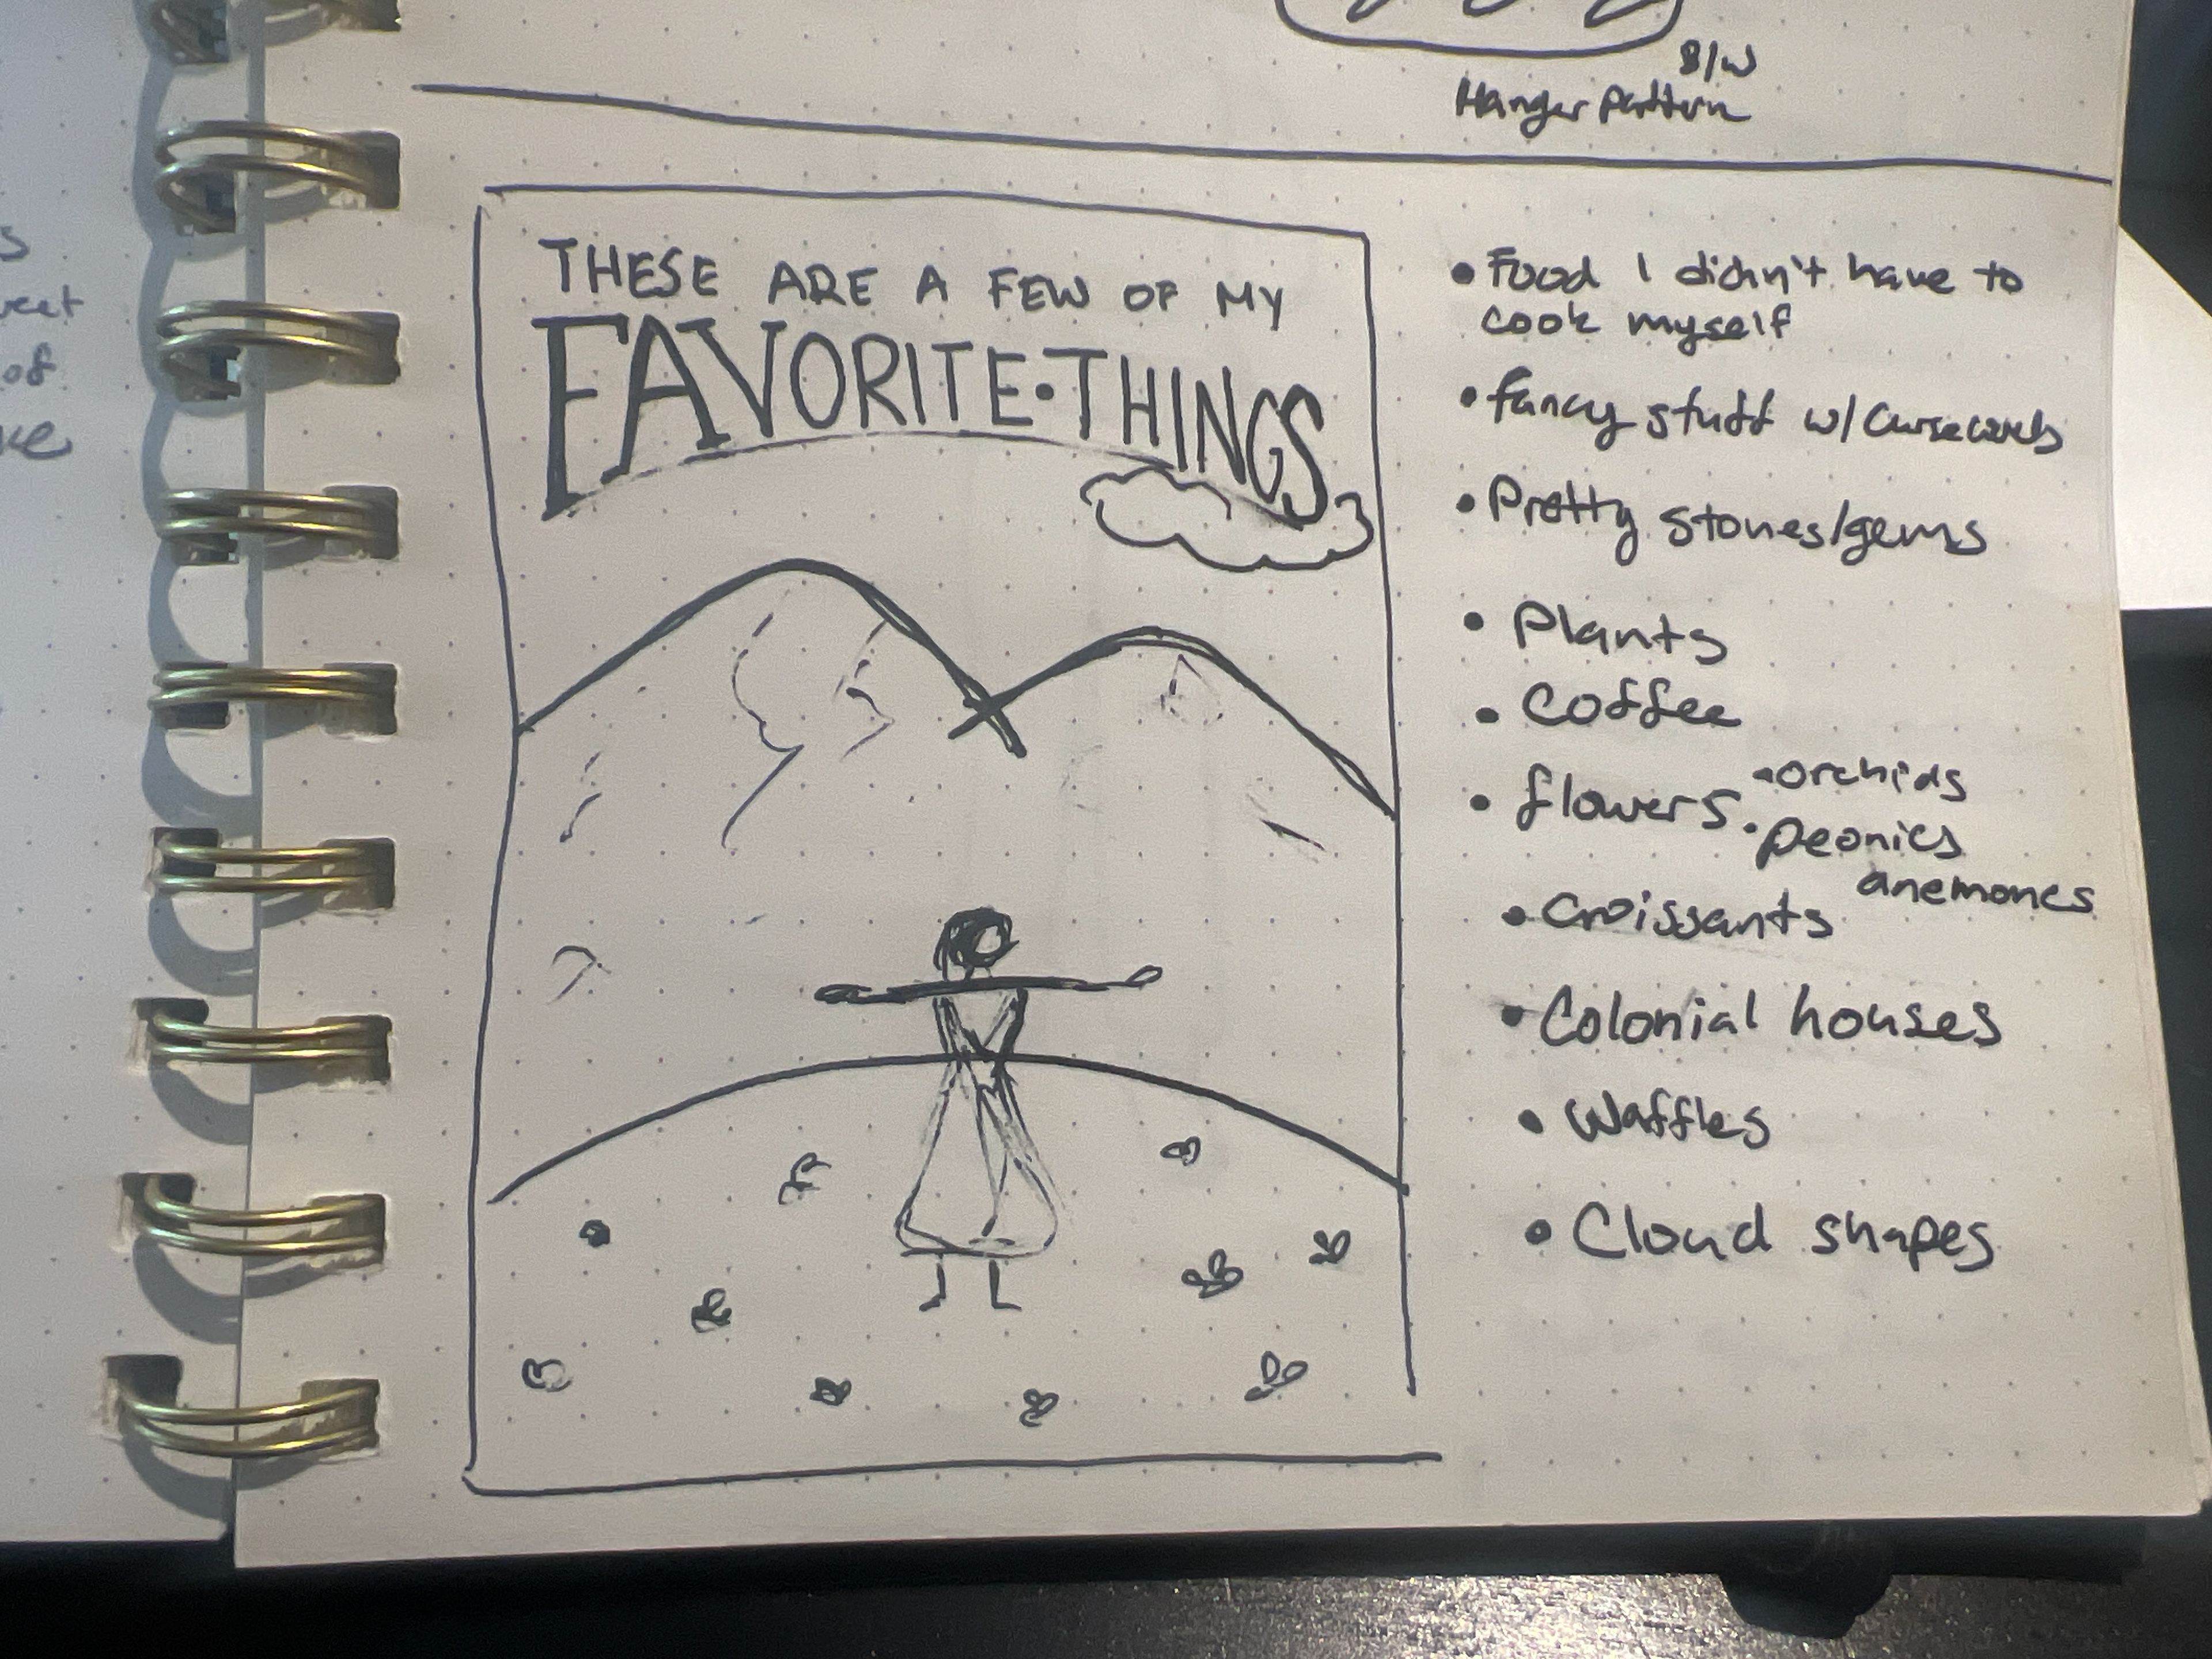 S
of
B/W
Hanger Pattern
THESE ARE A FEW OF MY
FAVORITE • THINGS
• Food I didn't have to
cook myself
• fancy stuff w/
• Pretty stones/gems
• Plants
• Coffee
• flowers • orchids
• peonies
anemones
• Croissants
• Colonial houses
• Waffles
• Cloud shapes